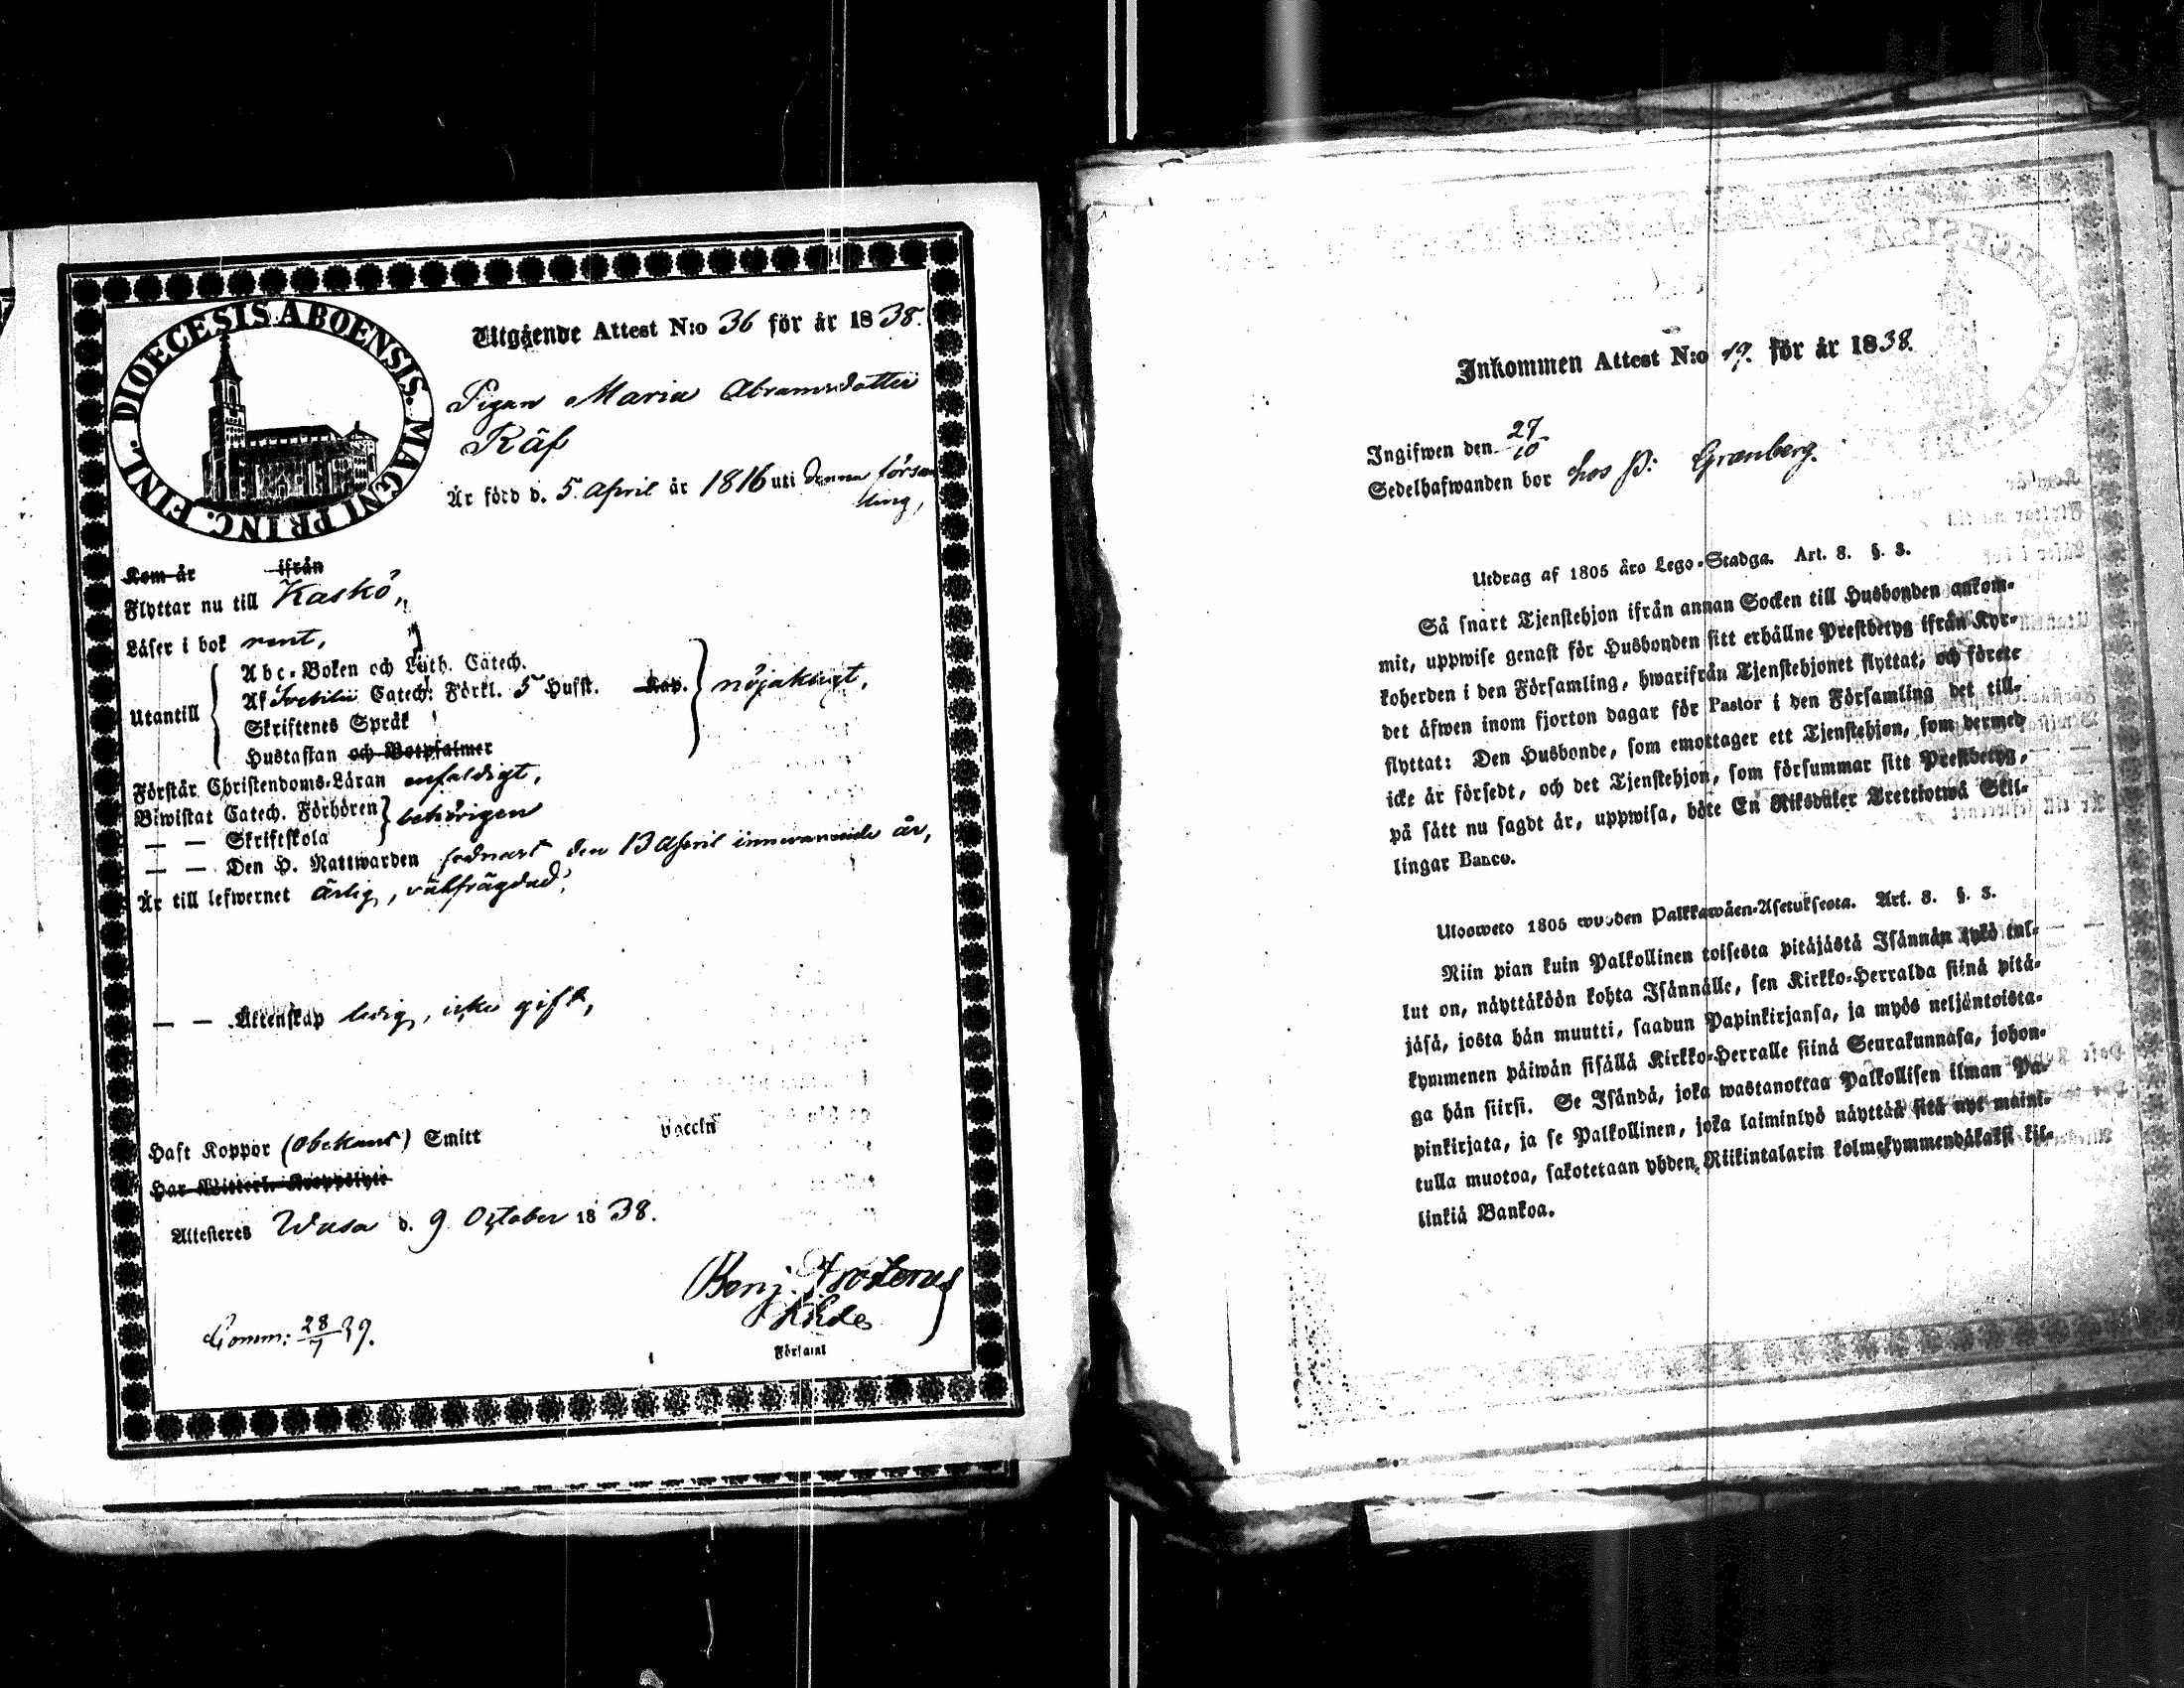 DIOECESIS ABOENSIS. MAGNI PRINC. FINL.
Utgående Attest N:o 36 för år 1838.
Pigan Maria Abramsdotter
Räf
År född d. 5 April år 1816 uti denna försam
ling,
Kom år ifrån
Flyttar nu till Kaskö,
Läser i bok rent,
Utantill
Abc-Boken och Luth. Catech.
Af Svebilii Catech: Förkl. 5 Hufst. Kap. nöjaktigt,
Skriftenes Språk
Hustaflan och Botpsalmer
Förstår Christendoms-Läran enfaldigt,
Biwistat Catech. Förhören behörigen
— — Skriftskola
— — Den H. Nattwarden sednast den 13 April innevarande år,
Är till lefwernet ärlig, välfrägdad,
— — Äktenskap ledig, icke gift,
Haft Koppor (obekant) Smitt Vaccin
Har Witterl. Kroppslyte
Attesteres Wasa d. 9 October 1838.
Benj. Frosterus
Församl
Comm: 28/7 39.
Inkommen Attest N:o 19. för år 1838.
Ingifwen den 27/10
Sedelhafwanden bor hos P: Granberg.
Utdrag af 1805 års Lego-Stadga. Art. 8. §. 3.
Så snart Tjenstehjon ifrån annan Socken till Husbonden ankom-
mit, uppwise genast för Husbonden sitt erhållne Prestbetyg ifrån Kyr-
koherden i den Församling, hwarifrån Tjenstehjonet flyttat, och förete
det äfwen inom fjorton dagar för Pastor i den Församling det till-
flyttat: Den Husbonde, som emottager ett Tjenstehjon, som dermed
icke är försedt, och det Tjenstehjon, som försummar sitt Prestbetyg,
på sätt nu sagdt är, uppwisa, böte En Riksdaler Trettiotwå Skil-
lingar Banco.
Ulosweto 1805 wuoden Palkkawäen-Asetuksesta. Art. 8. §. 3.
Niin pian kuin Palkollinen toisesta pitäjästä Isännän tykö tul-
lut on, näyttäköön kohta Isännälle, sen Kirkko-Herralda siinä pitä-
jäsä, josta hän muutti, saadun Papinkirjansa, ja myös neljäntoista-
kymmenen päiwän sisällä Kirkko-Herralle siinä Seurakunnasa, johon-
ga hän siirsi. Se Isändä, joka wastanottaa Palkollisen ilman Pa-
pinkirjata, ja se Palkollinen, joka laiminlyö näyttää sitä nyt maini-
tulla muotoa, sakotetaan yhden Riikintalarin kolmekymmendäkaksi kil-
linkiä Bankoa.